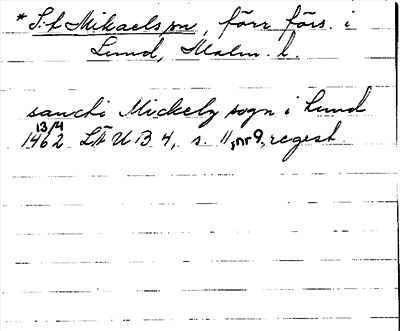 * S:t Mikaels sn, förr förs. i
Lund, Malm. l.
sancti Mickels sogn i Lund
13/4
1462 LÄU B 4, s. 11, nr 9, regest